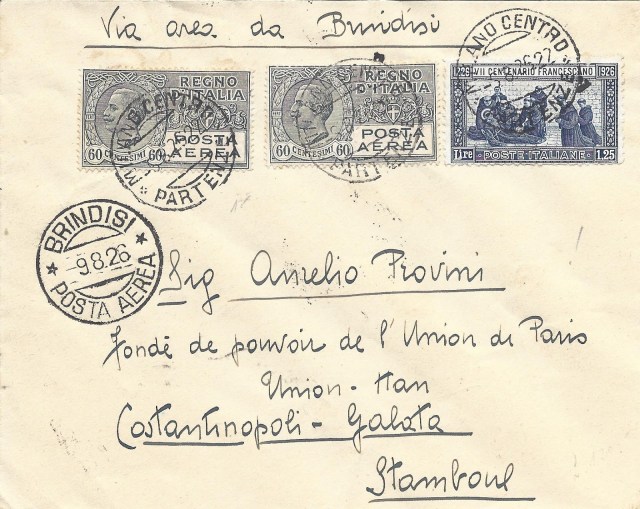 Via aerea da Brindisi
REGNO D'ITALIA
POSTA AEREA
60 CENTESIMI 60
REGNO D'ITALIA
POSTA AEREA
60 CENTESIMI 60
1226 VII CENTENARIO FRANCESCANO 1926
lire POSTE ITALIANE 1.25
MILANO CENTRO
PARTENZA
BRINDISI
9.8.26
POSTA AEREA
Sig Aurelio Provini
fondé de pouvoir de l'Union de Paris
Union-Han
Costantinopoli - Galata
Stamboul